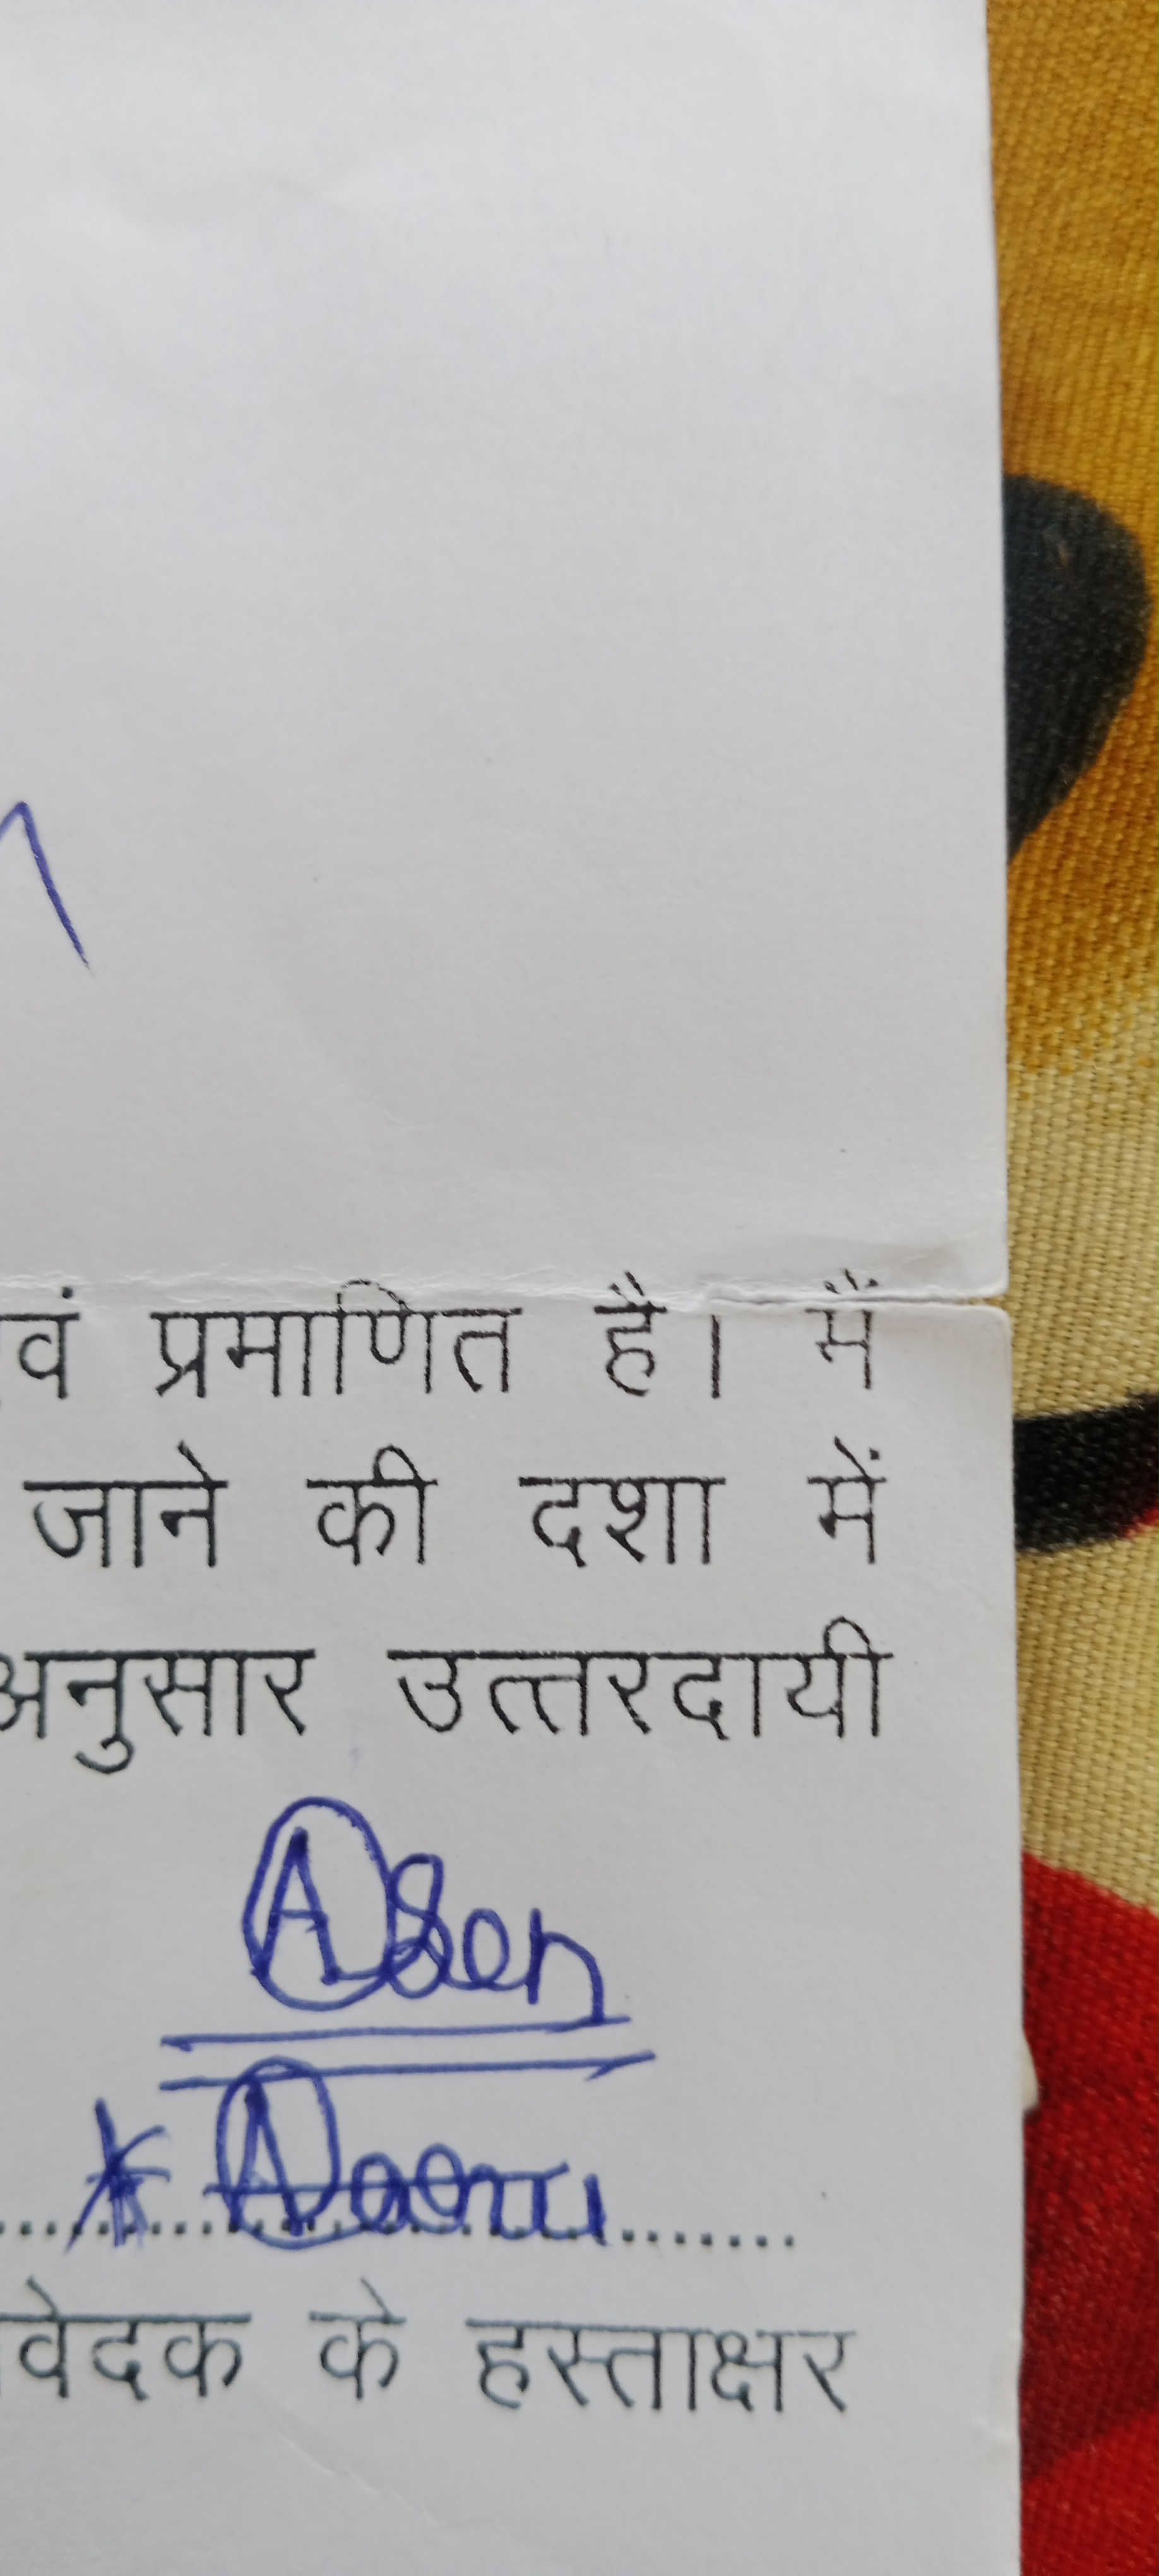 एवं प्रमाणित है। मैं
जाने की दशा में
अनुसार उत्तरदायी
ASen
वेदक के हस्ताक्षर